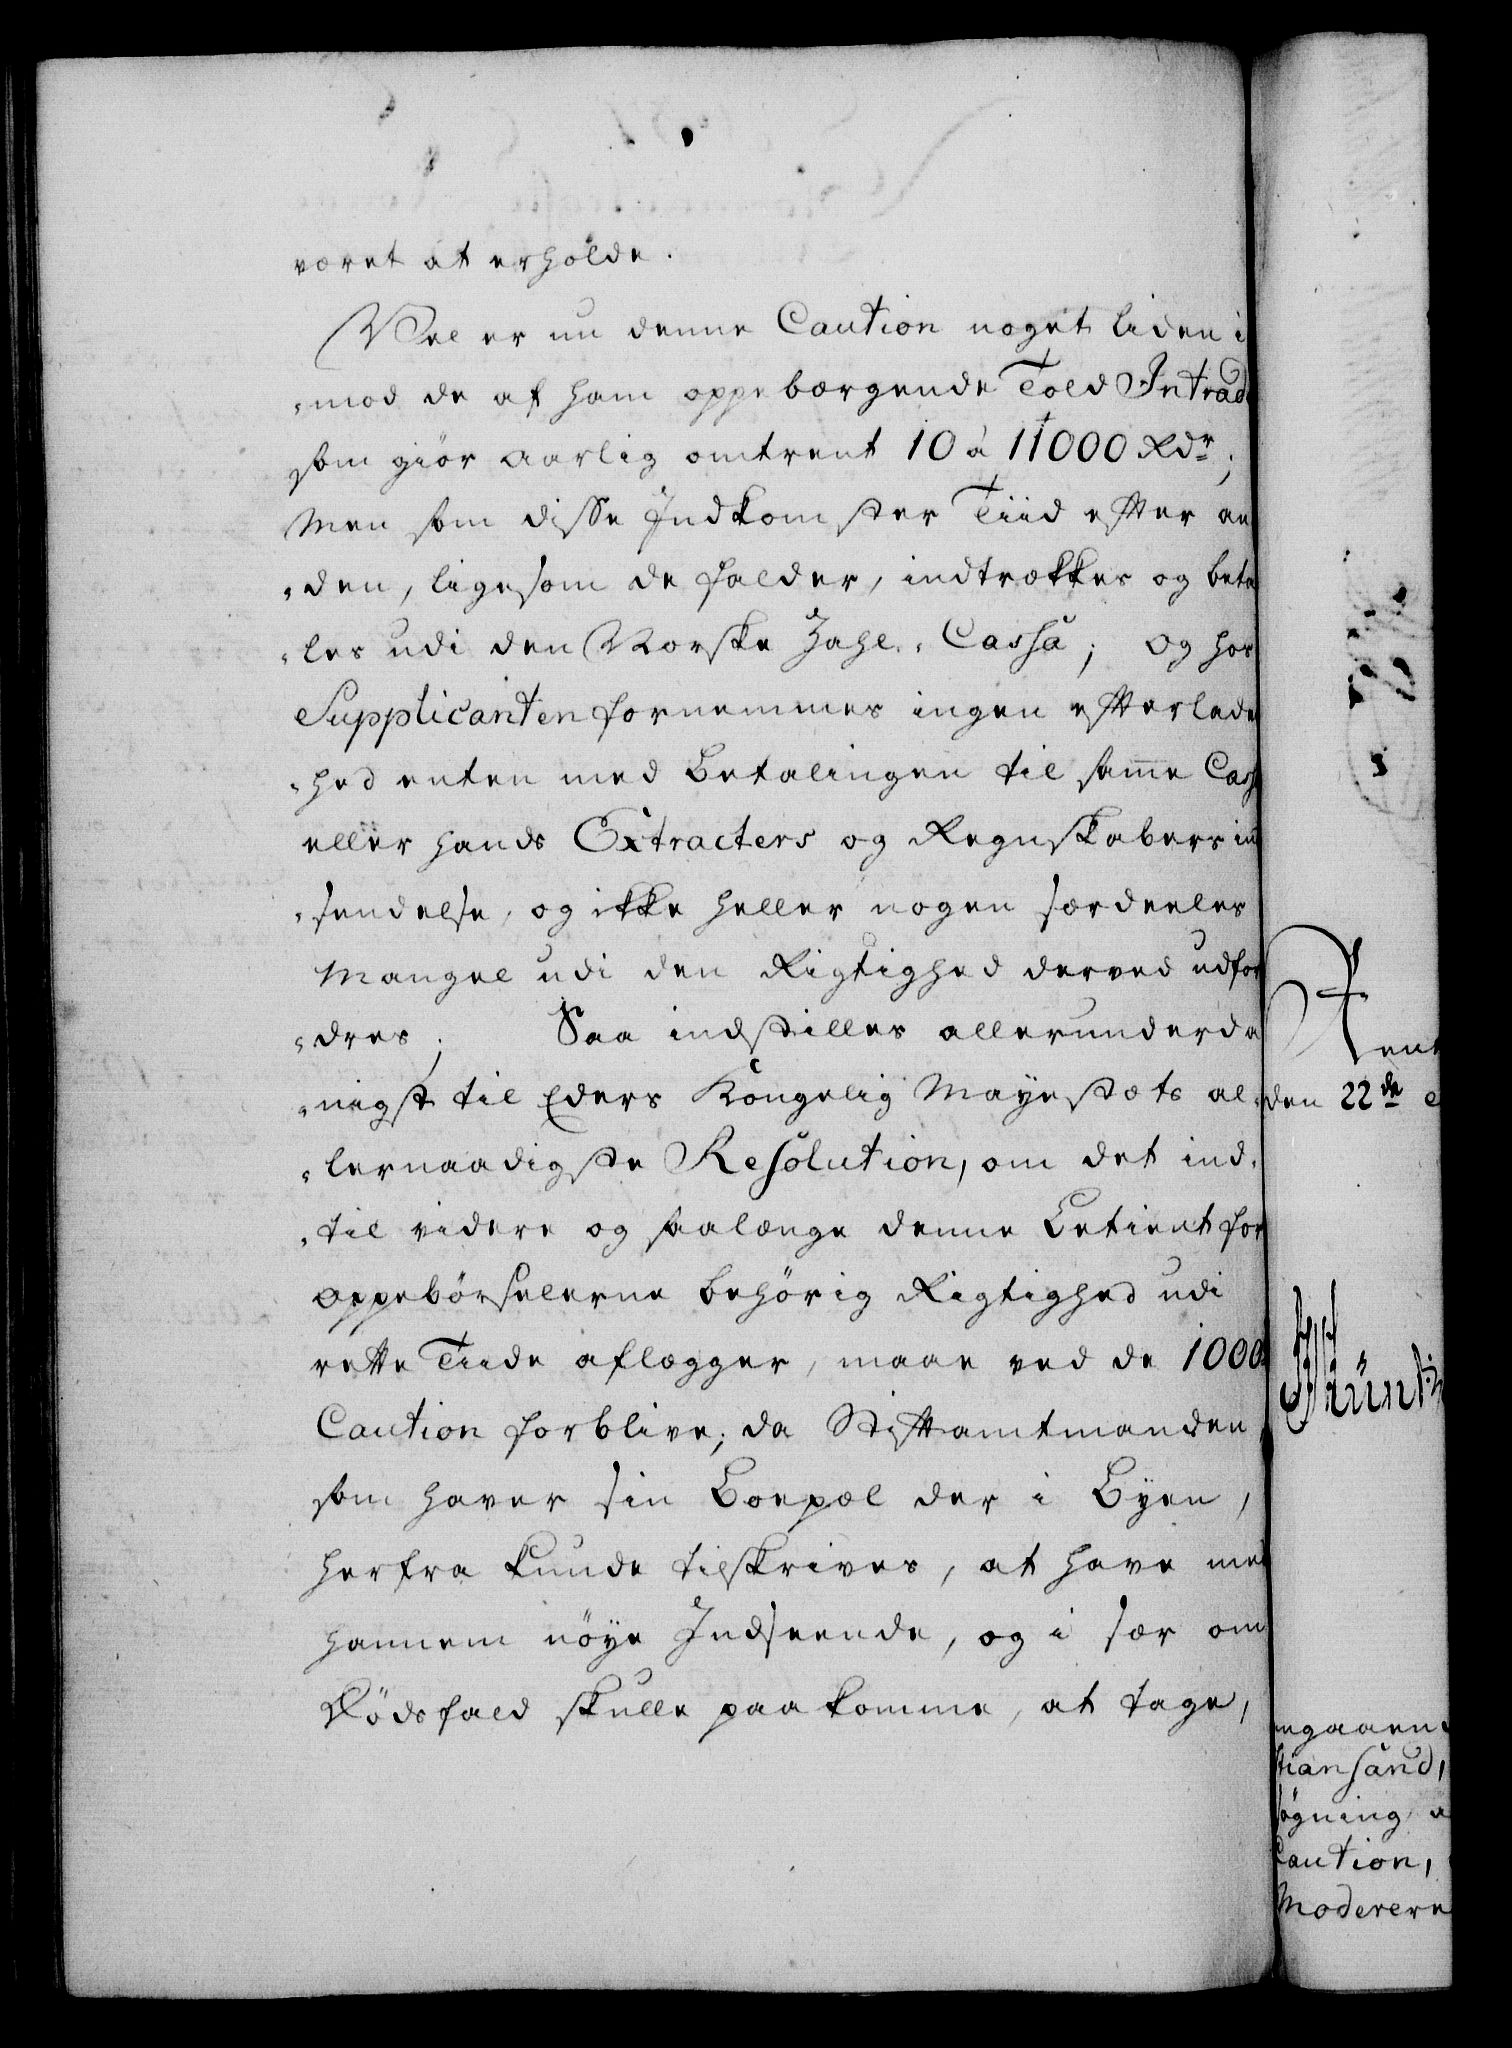 været at erholde.
Vel er nu denne Caution noget liden i
„mod de af ham oppebærgende Told Intrad
som giör aarlig omtrent 10 à 11000 Rdr;
Men som disse Indkomster Tiid efter an
„den, ligesom de falder, indtrækkes og beta
„les udi den Norske Zahl-Cassa; og hos
Supplicanten fornemmes ingen efterlade
„hed enten med Betalingen til samme Cass
eller hands Extracters og Regnskabers ind
„sendelse, og ikke heller nogen særdeeles
Mangel udi den Rigtighed derved udfor
„dres; Saa indstilles allerunderda
„nigst til Eders Kongelig Mayestæts al„
„lernaadigste Resolution, om det ind„
„til videre og saalænge denne Betient for
oppebörselerne behörig Rigtighed udi
rette Tiide aflægger, maae ved de 1000
Caution forblive; da Stiftamtmanden,
som haver sin Boepæl der i Byen,
herfra kunde tilskrives, at have med
hannem nöye Indseende, og i sær om
Dödsfald skulle paakomme, at tage,
Rent
den 22de
engaaend
stiansand,
søgning a
Caution,
Moderere